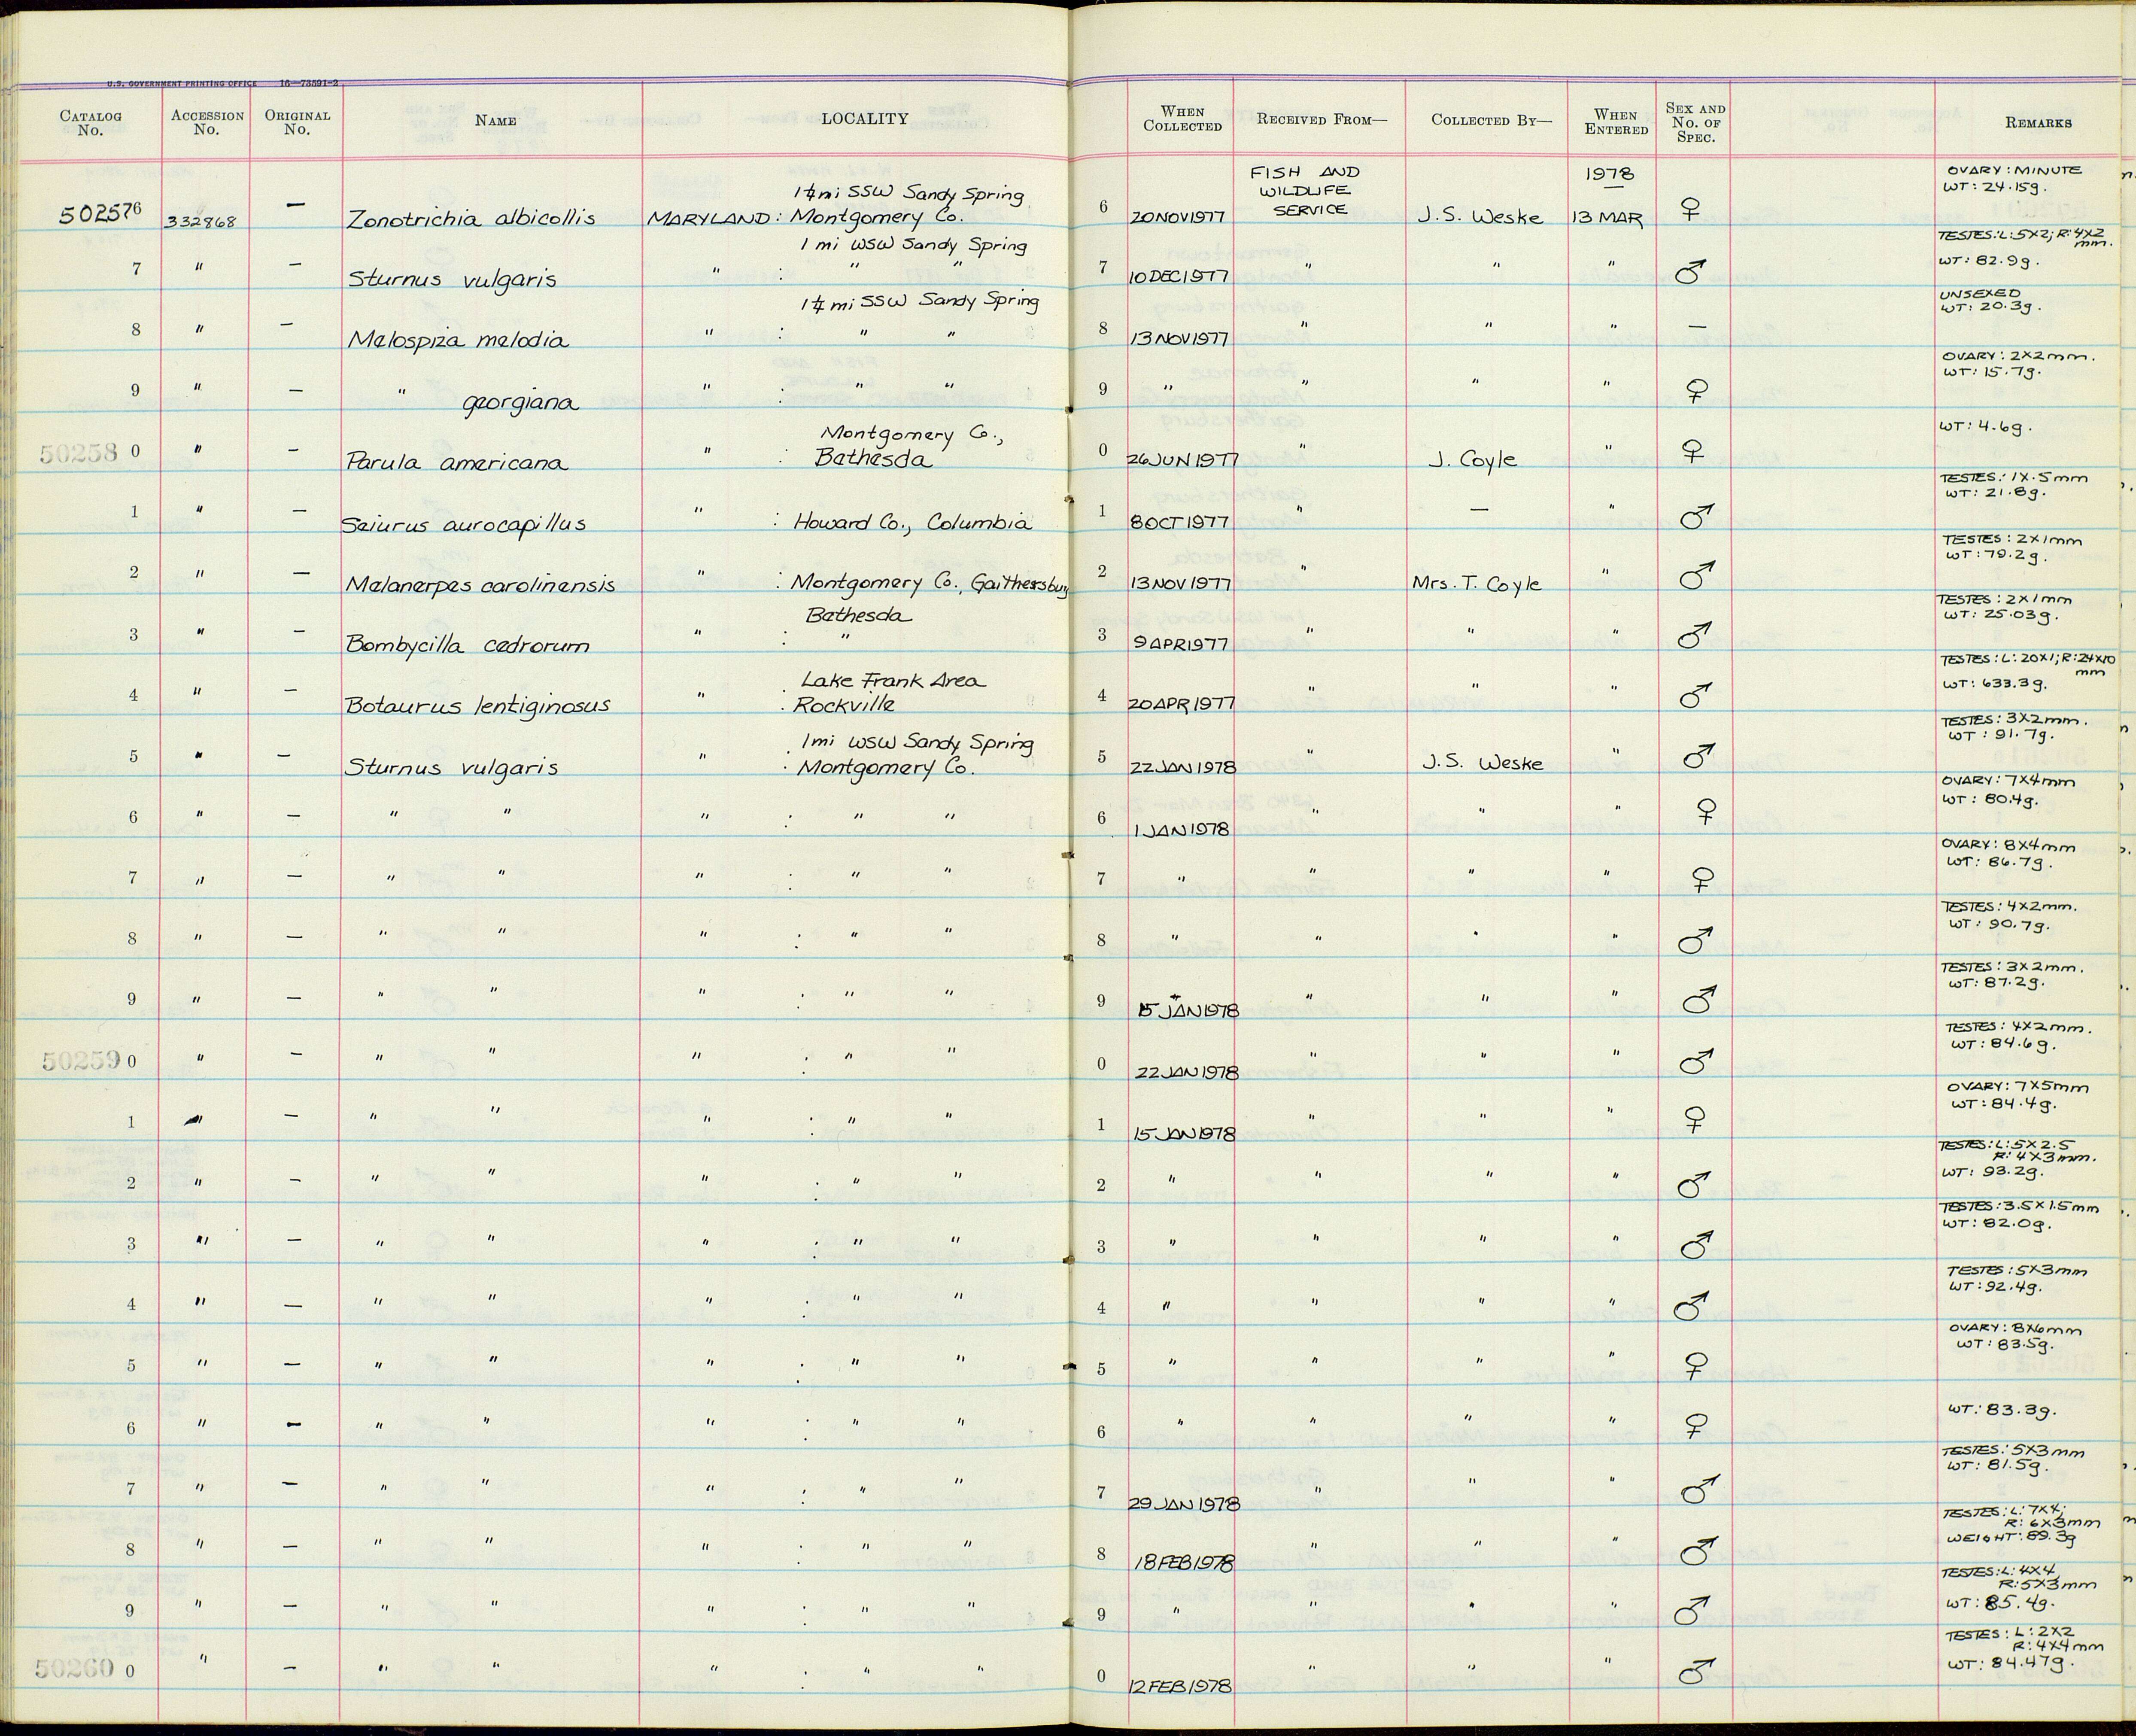 U.S. GOVERNMENT PRINTING OFFICE 16—73591-2
CATALOG No. ACCESSION No. ORIGINAL No. NAME LOCALITY WHEN COLLECTED RECEIVED FROM— COLLECTED BY— WHEN ENTERED SEX AND No. OF SPEC. REMARKS
FISH AND WILDLIFE SERVICE 1978 OVARY: MINUTE
1¼mi SSW Sandy Spring WT: 24.15g.
502576 332868 — Zonotrichia albicollis MARYLAND: Montgomery Co. 6 20NOV1977 J.S. Weske 13 MAR ♀
1 mi WSW Sandy Spring TESTES: L: 5X2; R: 4X2 mm.
7 " — Sturnus vulgaris " : " " 7 10DEC1977 " " " ♂ WT: 82.9g.
1¼mi SSW Sandy Spring UNSEXED
8 " — Melospiza melodia " : " " 8 13NOV1977 " " " — WT: 20.3g.
OVARY: 2X2mm.
9 " — " georgiana " : " " 9 " " " " ♀ WT: 15.7g.
Montgomery Co.,
50258 0 " — Parula americana " : Bethesda 0 26JUN1977 " J. Coyle " ♀ WT: 4.6g.
TESTES: 1X.5mm
1 " — Seiurus aurocapillus " : Howard Co., Columbia 1 8OCT1977 " — " ♂ WT: 21.8g.
TESTES: 2X1mm
2 " — Melanerpes carolinensis " : Montgomery Co., Gaithersburg 2 13NOV1977 " Mrs. T. Coyle " ♂ WT: 79.2g.
Bethesda TESTES: 2X1mm
3 " — Bombycilla cedrorum " : " 3 9APR1977 " " " ♂ WT: 25.03g.
Lake Frank Area TESTES: L: 20X1; R: 24X10 mm
4 " — Botaurus lentiginosus " : Rockville 4 20APR1977 " " " ♂ WT: 633.3g.
1mi WSW Sandy Spring TESTES: 3X2mm.
5 " — Sturnus vulgaris " : Montgomery Co. 5 22JAN1978 " J.S. Weske " ♂ WT: 91.7g.
OVARY: 7X4mm
6 " — " " " : " " 6 1JAN1978 " " " ♀ WT: 80.4g.
OVARY: 8X4mm
7 " — " " " : " " 7 " " " " ♀ WT: 86.7g.
TESTES: 4X2mm.
8 " — " " " : " " 8 " " " " ♂ WT: 90.7g.
TESTES: 3X2mm.
9 " — " " " : " " 9 15JAN1978 " " " ♂ WT: 87.2g.
TESTES: 4X2mm.
50259 0 " — " " " : " " 0 22JAN1978 " " " ♂ WT: 84.6g.
OVARY: 7X5mm
1 " — " " " : " " 1 15JAN1978 " " " ♀ WT: 84.4g.
TESTES: L: 5X2.5
R: 4X3mm.
2 " — " " " : " " 2 " " " " ♂ WT: 93.2g.
TESTES: 3.5X1.5mm
3 " — " " " : " " 3 " " " " ♂ WT: 82.0g.
TESTES: 5X3mm
4 " — " " " : " " 4 " " " " ♂ WT: 92.4g.
OVARY: 8X6mm
5 " — " " " : " " 5 " " " " ♀ WT: 83.5g.
6 " — " " " : " " 6 " " " " ♀ WT: 83.3g.
TESTES: 5X3mm
7 " — " " " : " " 7 29JAN1978 " " " ♂ WT: 81.5g.
TESTES: L: 7X4;
R: 6X3mm
8 " — " " " : " " 8 18FEB1978 " " " ♂ WEIGHT: 89.3g
TESTES: L: 4X4
R: 5X3mm
9 " — " " " : " " 9 " " " " ♂ WT: 85.4g.
TESTES: L: 2X2
R: 4X4mm
50260 0 " — " " " : " " 0 12FEB1978 " " " ♂ WT: 84.47g.